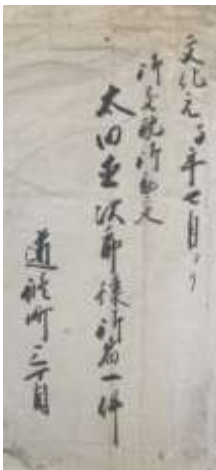 文化元子年七月ゟ
御支配御勘定
太田直次郎様御宿一件
道修町三丁目